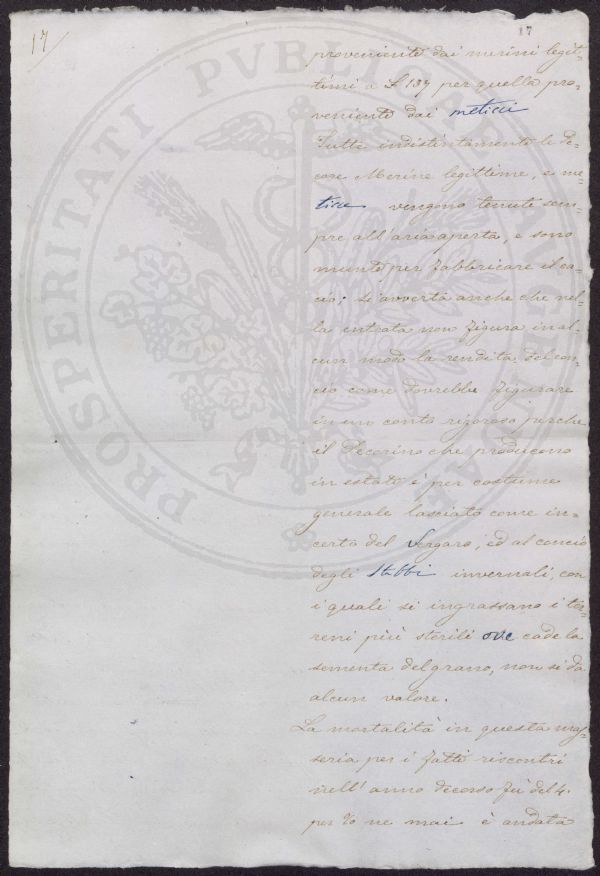 17
17
proveniente dai merini legit=
timi a £ 137 per quella pro=
veniente dai meticci
Tutte indistintamente le Pe=
core Merine legittime, e me=
ticce vengono tenute sem=
pre all'aria aperta, e sono
munte per fabbricare il ca=
cio: si avverta anche che nel=
la entrata non figura in al=
cun modo la rendita del con=
cio come dovrebbe figurare
in un conto rigoroso perchè
il Pecorino che producono
in estate è per costume
generale lasciato come in=
certo del Vergaro, ed al concio
degli Stabbi invernali, con
i quali si ingrassano i ter=
reni più sterili ove cade la
sementa del grano, non si da
alcun valore.
La mortalità in questa mas=
seria per i fatti riscontri
nell'anno decorso fù del 4.
per % ne mai è andata
PROSPERITATI PVBLICAE AVGENDAE